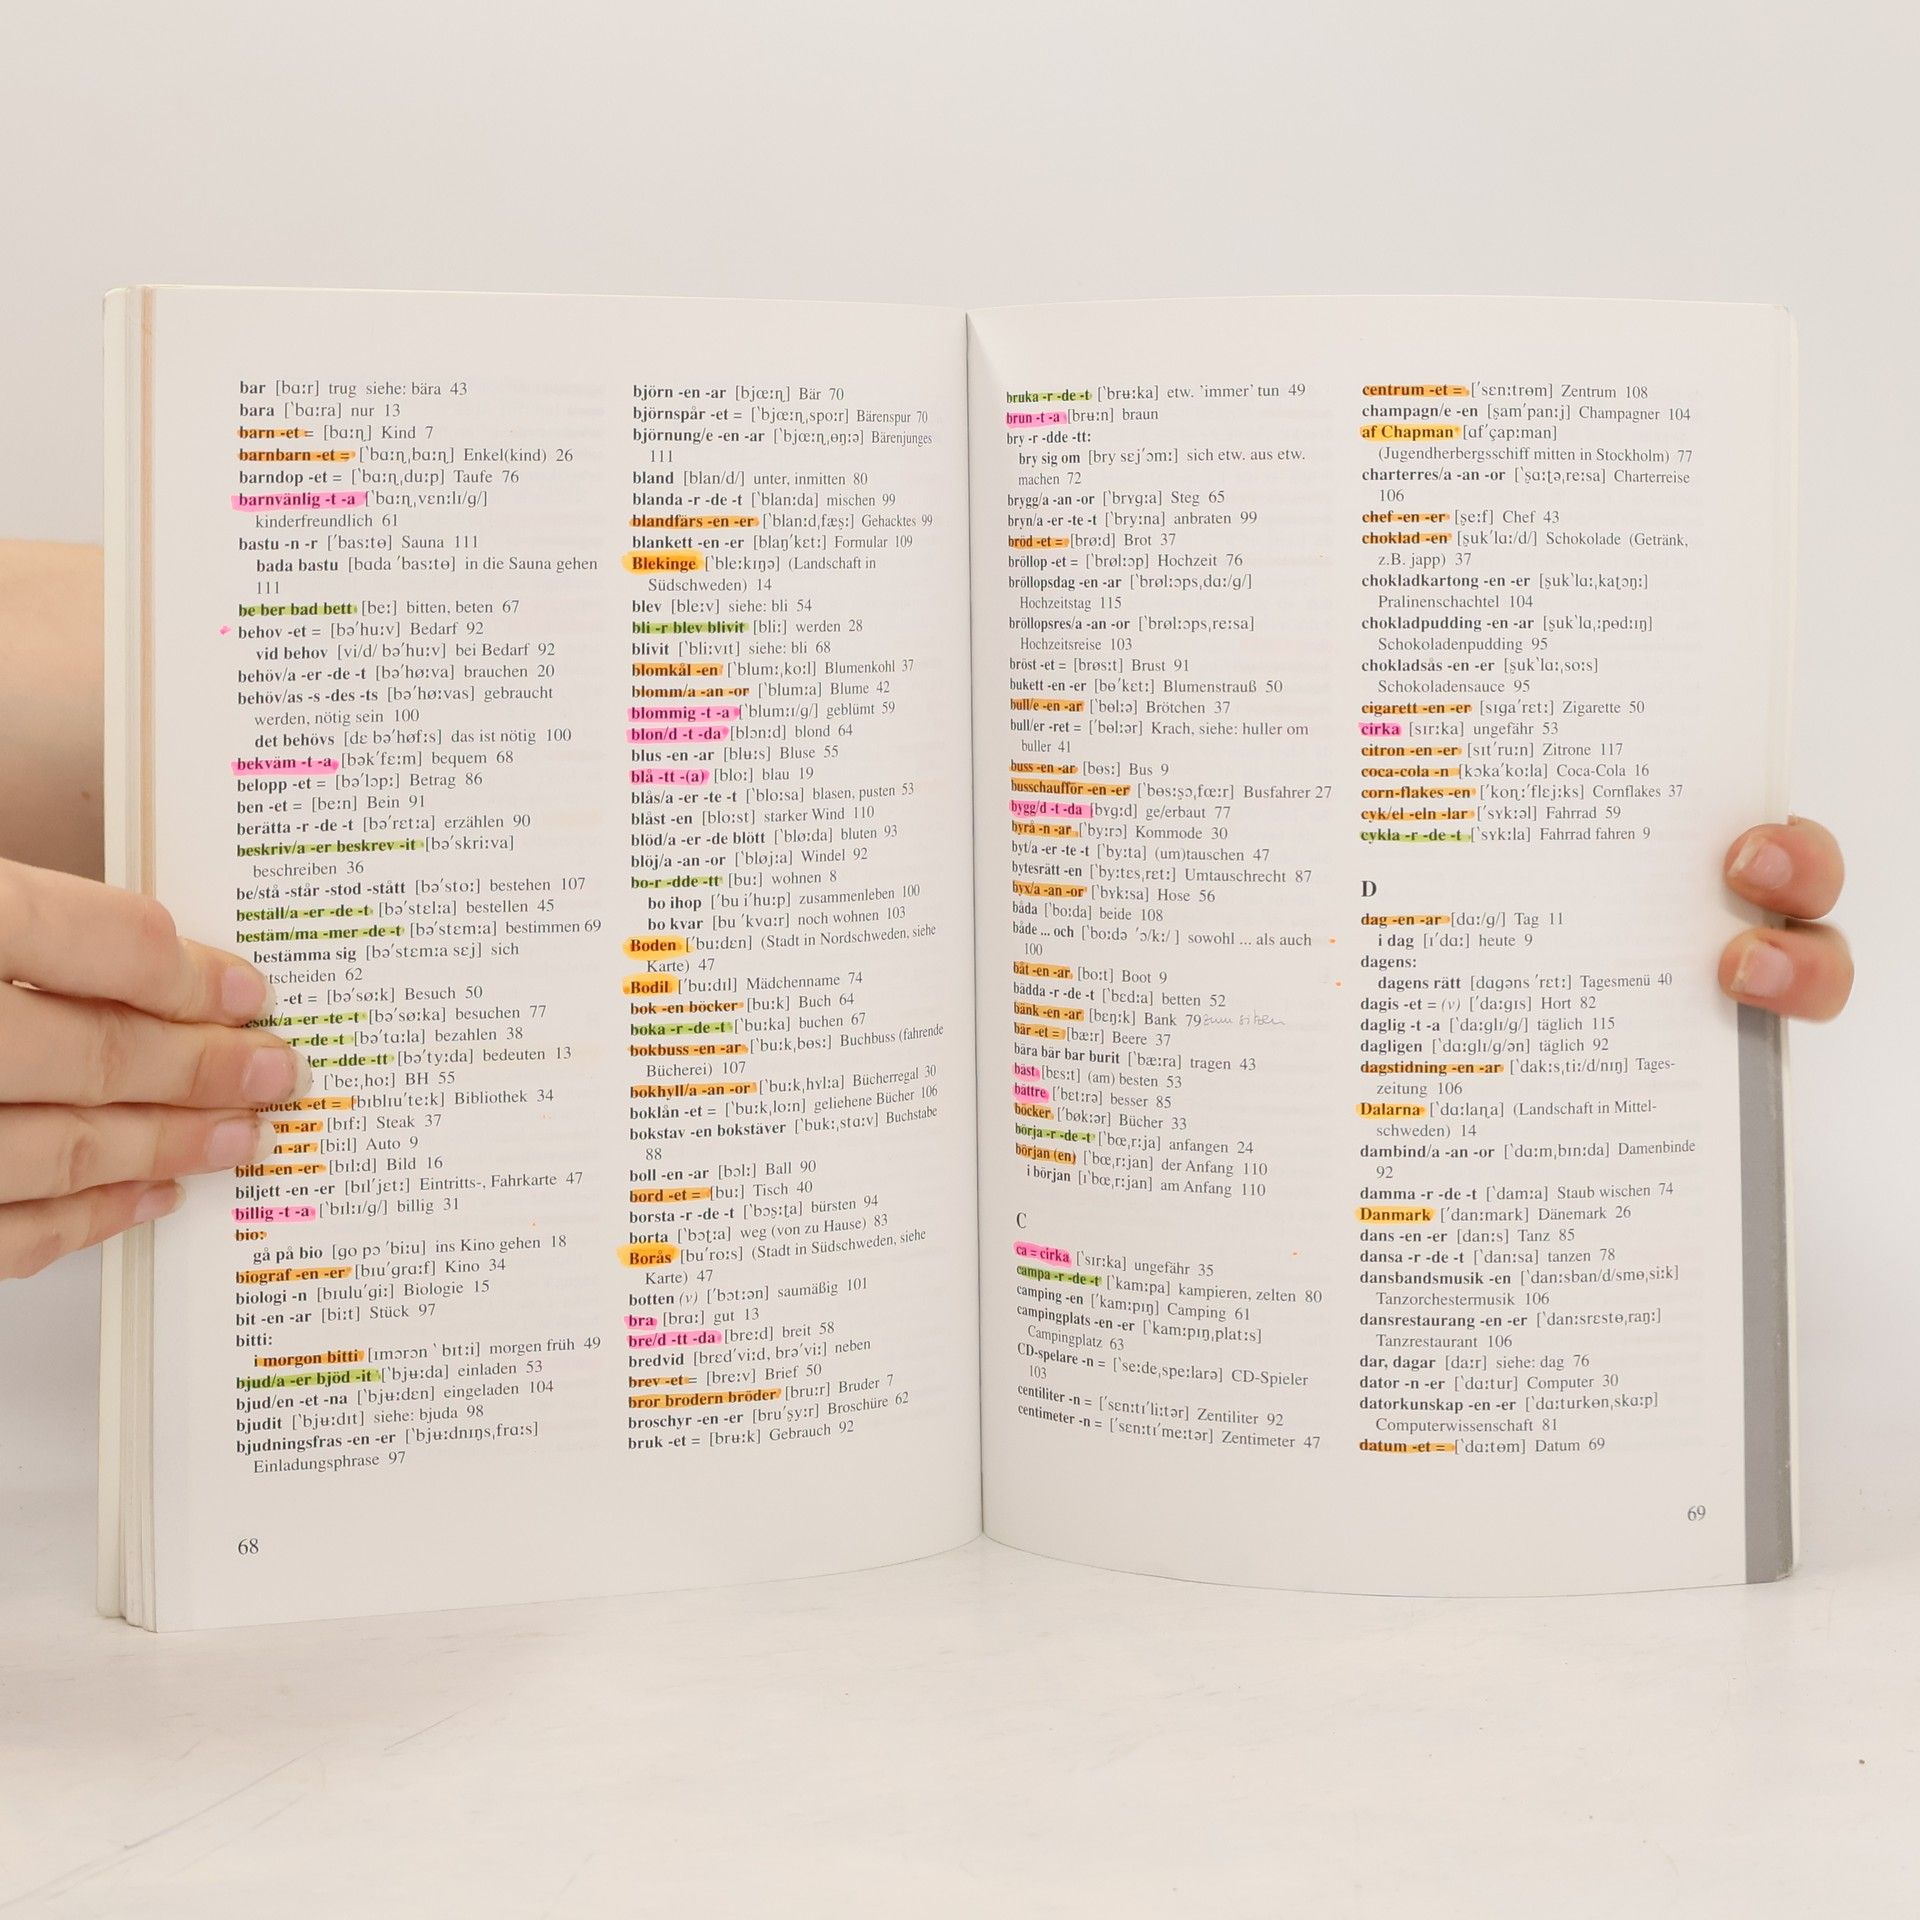 bar [bɑːr] trug siehe: bära 43
bara [ˋbɑːra] nur 13
barn -et = [bɑːɳ] Kind 7
barnbarn -et = [ˋbɑːɳˌbɑːɳ] Enkel(kind) 26
barndop -et = [ˋbɑːɳˌduːp] Taufe 76
barnvänlig -t -a [ˋbɑːɳˌvɛnːlɪ/g/]
kinderfreundlich 61
bastu -n -r [ˊbasːtɵ] Sauna 111
bada bastu [bɑda ˊbasːtɵ] in die Sauna gehen
111
be ber bad bett [beː] bitten, beten 67
behov -et = [bəˊhuːv] Bedarf 92
vid behov [vi/d/ bəˊhuːv] bei Bedarf 92
behöv/a -er -de -t [bəˊhøːva] brauchen 20
behöv/as -s -des -ts [bəˊhøːvas] gebraucht
werden, nötig sein 100
det behövs [dɛ bəˊhøfːs] das ist nötig 100
bekväm -t -a [bəkˊfɛːm] bequem 68
belopp -et = [bəˊlɔpː] Betrag 86
ben -et = [beːn] Bein 91
berätta -r -de -t [bəˊrɛtːa] erzählen 90
beskriv/a -er beskrev -it [bəˊskriːva]
beschreiben 36
be/stå -står -stod -stått [bəˊstoː] bestehen 107
beställ/a -er -de -t [bəˊstɛlːa] bestellen 45
bestäm/ma -mer -de -t [bəˊstɛmːa] bestimmen 69
bestämma sig [bəˊstɛmːa sɛj] sich
tscheiden 62
-et = [bəˊsøːk] Besuch 50
esök/a -er -te -t [bəˊsøːka] besuchen 77
-r -de -t [bəˊtɑːla] bezahlen 38
der -dde -tt [bəˊtyːda] bedeuten 13
[ˋbeːˌhoː] BH 55
iotek -et = [bɪblɪuˊteːk] Bibliothek 34
en -ar [bɪfː] Steak 37
n -ar [biːl] Auto 9
bild -en -er [bɪlːd] Bild 16
biljett -en -er [bɪlˊjɛtː] Eintritts-, Fahrkarte 47
billig -t -a [ˋbɪlːɪ/g/] billig 31
bio:
gå på bio [gɑ pɔ ˊbiːu] ins Kino gehen 18
biograf -en -er [bɪuˊgrɑːf] Kino 34
biologi -n [bɪuluˊgiː] Biologie 15
bit -en -ar [biːt] Stück 97
bitti:
i morgon bitti [ɪmɔrɔn ˋbɪtːi] morgen früh 49
bjud/a -er bjöd -it [ˋbjʉːda] einladen 53
bjud/en -et -na [ˋbjʉːdɛn] eingeladen 104
bjudit [ˋbjʉːdɪt] siehe: bjuda 98
bjudningsfras -en -er [ˋbjʉːdnɪŋsˌfrɑːs]
Einladungsphrase 97
68
björn -en -ar [bjœːɳ] Bär 70
björnspår -et = [ˋbjœːɳˌspoːr] Bärenspur 70
björnung/e -en -ar [ˋbjœːɳˌɵŋːə] Bärenjunges
111
bland [blan/d/] unter, inmitten 80
blanda -r -de -t [ˋblanːda] mischen 99
blandfärs -en -er [ˋblanːdˌfæʂː] Gehacktes 99
blankett -en -er [blaŋˊkɛtː] Formular 109
Blekinge [ˋbleːkɪŋə] (Landschaft in
Südschweden) 14
blev [bleːv] siehe: bli 54
bli -r blev blivit [bliː] werden 28
blivit [ˋbliːvɪt] siehe: bli 68
blomkål -en [ˋblumːˌkoːl] Blumenkohl 37
blomm/a -an -or [ˋblumːa] Blume 42
blommig -t -a [ˋblumːɪ/g/] geblümt 59
blon/d -t -da [blɔnːd] blond 64
blus -en -ar [blʉːs] Bluse 55
blå -tt -(a) [bloː] blau 19
blås/a -er -te -t [ˋbloːsa] blasen, pusten 53
blåst -en [bloːst] starker Wind 110
blöd/a -er -de blött [ˋbløːda] bluten 93
blöj/a -an -or [ˋbløjːa] Windel 92
bo-r -dde -tt [buː] wohnen 8
bo ihop [ˋbu iˊhuːp] zusammenleben 100
bo kvar [bu ˊkvɑːr] noch wohnen 103
Boden [ˋbuːdɛn] (Stadt in Nordschweden, siehe
Karte) 47
Bodil [ˊbuːdɪl] Mädchenname 74
bok -en böcker [buːk] Buch 64
boka -r -de -t [ˋbuːka] buchen 67
bokbuss -en -ar [ˋbuːkˌbɵsː] Buchbuss (fahrende
Bücherei) 107
bokhyll/a -an -or [ˋbuːkˌhʏlːa] Bücherregal 30
boklån -et = [ˋbuːkˌloːn] geliehene Bücher 106
bokstav -en bokstäver [ˋbukːˌstɑːv] Buchstabe
88
boll -en -ar [bɔlː] Ball 90
bord -et = [buː] Tisch 40
borsta -r -de -t [ˋbɔʂːʈa] bürsten 94
borta [ˋbɔʈːa] weg (von zu Hause) 83
Borås [buˊroːs] (Stadt in Südschweden, siehe
Karte) 47
botten (v) [ˋbɔtːən] saumäßig 101
bra [brɑː] gut 13
bre/d -tt -da [breːd] breit 58
bredvid [brɛdˊviːd, brəˊviː] neben
brev -et = [breːv] Brief 50
bror brodern bröder [bruːr] Bruder 7
broschyr -en -er [bruˊʂyːr] Broschüre 62
bruk -et = [brʉːk] Gebrauch 92
bruka -r -de -t [ˋbrʉːka] etw. ’immer’ tun 49
brun -t -a [brʉːn] braun
bry -r -dde -tt:
bry sig om [bry sɛjˊɔmː] sich etw. aus etw.
machen 72
brygg/a -an -or [ˋbrʏgːa] Steg 65
bryn/a -er -te -t [ˋbryːna] anbraten 99
bröd -et = [brøːd] Brot 37
bröllop -et = [ˋbrølːɔp] Hochzeit 76
bröllopsdag -en -ar [ˋbrølːɔpsˌdɑː/g/]
Hochzeitstag 115
bröllopsres/a -an -or [ˋbrølːɔpsˌreːsa]
Hochzeitsreise 103
bröst -et = [brøsːt] Brust 91
bukett -en -er [bɵˊkɛtː] Blumenstrauß 50
bull/e -en -ar [ˋbɵlːə] Brötchen 37
bull/er -ret = [ˊbɵlːər] Krach, siehe: huller om
buller 41
buss -en -ar [bɵsː] Bus 9
busschaufför -en -er [ˋbɵsːʂɔˌfœːr] Busfahrer 27
bygg/d -t -da [bʏgːd] ge/erbaut 77
byrå -n -ar [ˋbyːrɔ] Kommode 30
byt/a -er -te -t [ˋbyːta] (um)tauschen 47
bytesrätt -en [ˋbyːtɛsˌrɛtː] Umtauschrecht 87
byx/a -an -or [ˋbʏkːsa] Hose 56
båda [ˋboːda] beide 108
både ... och [ˋboːdə ˊɔ/kː/ ] sowohl ... als auch
100
båt -en -ar [boːt] Boot 9
bädda -r -de -t [ˋbɛdːa] betten 52
bänk -en -ar [bɛŋːk] Bank 79 zum sitzen
bär -et = [bæːr] Beere 37
bära bär bar burit [ˋbæːra] tragen 43
bäst [bɛsːt] (am) besten 53
bättre [ˊbɛtːrə] besser 85
böcker [ˊbøkːər] Bücher 33
börja -r -de -t [ˋbœˌrːja] anfangen 24
början (en) [ˋbœˌrːjan] der Anfang 110
i början [ɪˋbœˌrːjan] am Anfang 110
C
ca = cirka [ˋsɪrːka] ungefähr 35
campa -r -de -t [ˋkamːpa] kampieren, zelten 80
camping -en [ˊkamːpɪŋ] Camping 61
campingplats -en -er [ˊkamːpɪŋˌplatːs]
Campingplatz 63
CD-spelare -n = [ˋseːdeˌspeːlarə] CD-Spieler
103
centiliter -n = [ˊsɛnːtɪˊliːtər] Zentiliter 92
centimeter -n = [ˊsɛnːtɪˊmeːtər] Zentimeter 47
centrum -et = [ˊsɛnːtrɵm] Zentrum 108
champagn/e -en [ʂamˊpanːj] Champagner 104
af Chapman [ɑfˊçapːman]
(Jugendherbergsschiff mitten in Stockholm) 77
charterres/a -an -or [ˊʂɑːʈəˌreːsa] Charterreise
106
chef -en -er [ʂeːf] Chef 43
choklad -en [ʂukˋlɑː/d/] Schokolade (Getränk,
z.B. japp) 37
chokladkartong -en -er [ʂukˋlɑːˌkaʈɔŋː]
Pralinenschachtel 104
chokladpudding -en -ar [ʂukˋlɑˌːpɵdːɪŋ]
Schokoladenpudding 95
chokladsås -en -er [ʂukˋlɑːˌsoːs]
Schokoladensauce 95
cigarett -en -er [sɪgaˊrɛtː] Zigarette 50
cirka [sɪrːka] ungefähr 53
citron -en -er [sɪtˊruːn] Zitrone 117
coca-cola -n [kɔkaˊkoːla] Coca-Cola 16
corn-flakes -en [ˊkoɳːˊflɛjːks] Cornflakes 37
cyk/el -eln -lar [ˊsʏkːəl] Fahrrad 59
cykla -r -de -t [ˊsʏkːla] Fahrrad fahren 9
D
dag -en -ar [dɑː/g/] Tag 11
i dag [ɪˊdɑː] heute 9
dagens:
dagens rätt [dɑgəns ˊrɛtː] Tagesmenü 40
dagis -et = (v) [ˊdɑːgɪs] Hort 82
daglig -t -a [ˋdɑːglɪ/g/] täglich 115
dagligen [ˋdɑːglɪ/g/ən] täglich 92
dagstidning -en -ar [ˋdakːsˌtiː/d/nɪŋ] Tages-
zeitung 106
Dalarna [ˋdɑːlaɳa] (Landschaft in Mittel-
schweden) 14
dambind/a -an -or [ˋdɑːmˌbɪnːda] Damenbinde
92
damma -r -de -t [ˋdamːa] Staub wischen 74
Danmark [ˊdanːmark] Dänemark 26
dans -en -er [danːs] Tanz 85
dansa -r -de -t [ˋdanːsa] tanzen 78
dansbandsmusik -en [ˋdanːsban/d/smɵˌsiːk]
Tanzorchestermusik 106
dansrestaurang -en -er [ˋdanːsrɛstɵˌraŋː]
Tanzrestaurant 106
dar, dagar [dɑːr] siehe: dag 76
dator -n -er [ˋdɑːtur] Computer 30
datorkunskap -en -er [ˋdɑːturkɵnˌskɑːp]
Computerwissenschaft 81
datum -et = [ˋdɑːtɵm] Datum 69
69